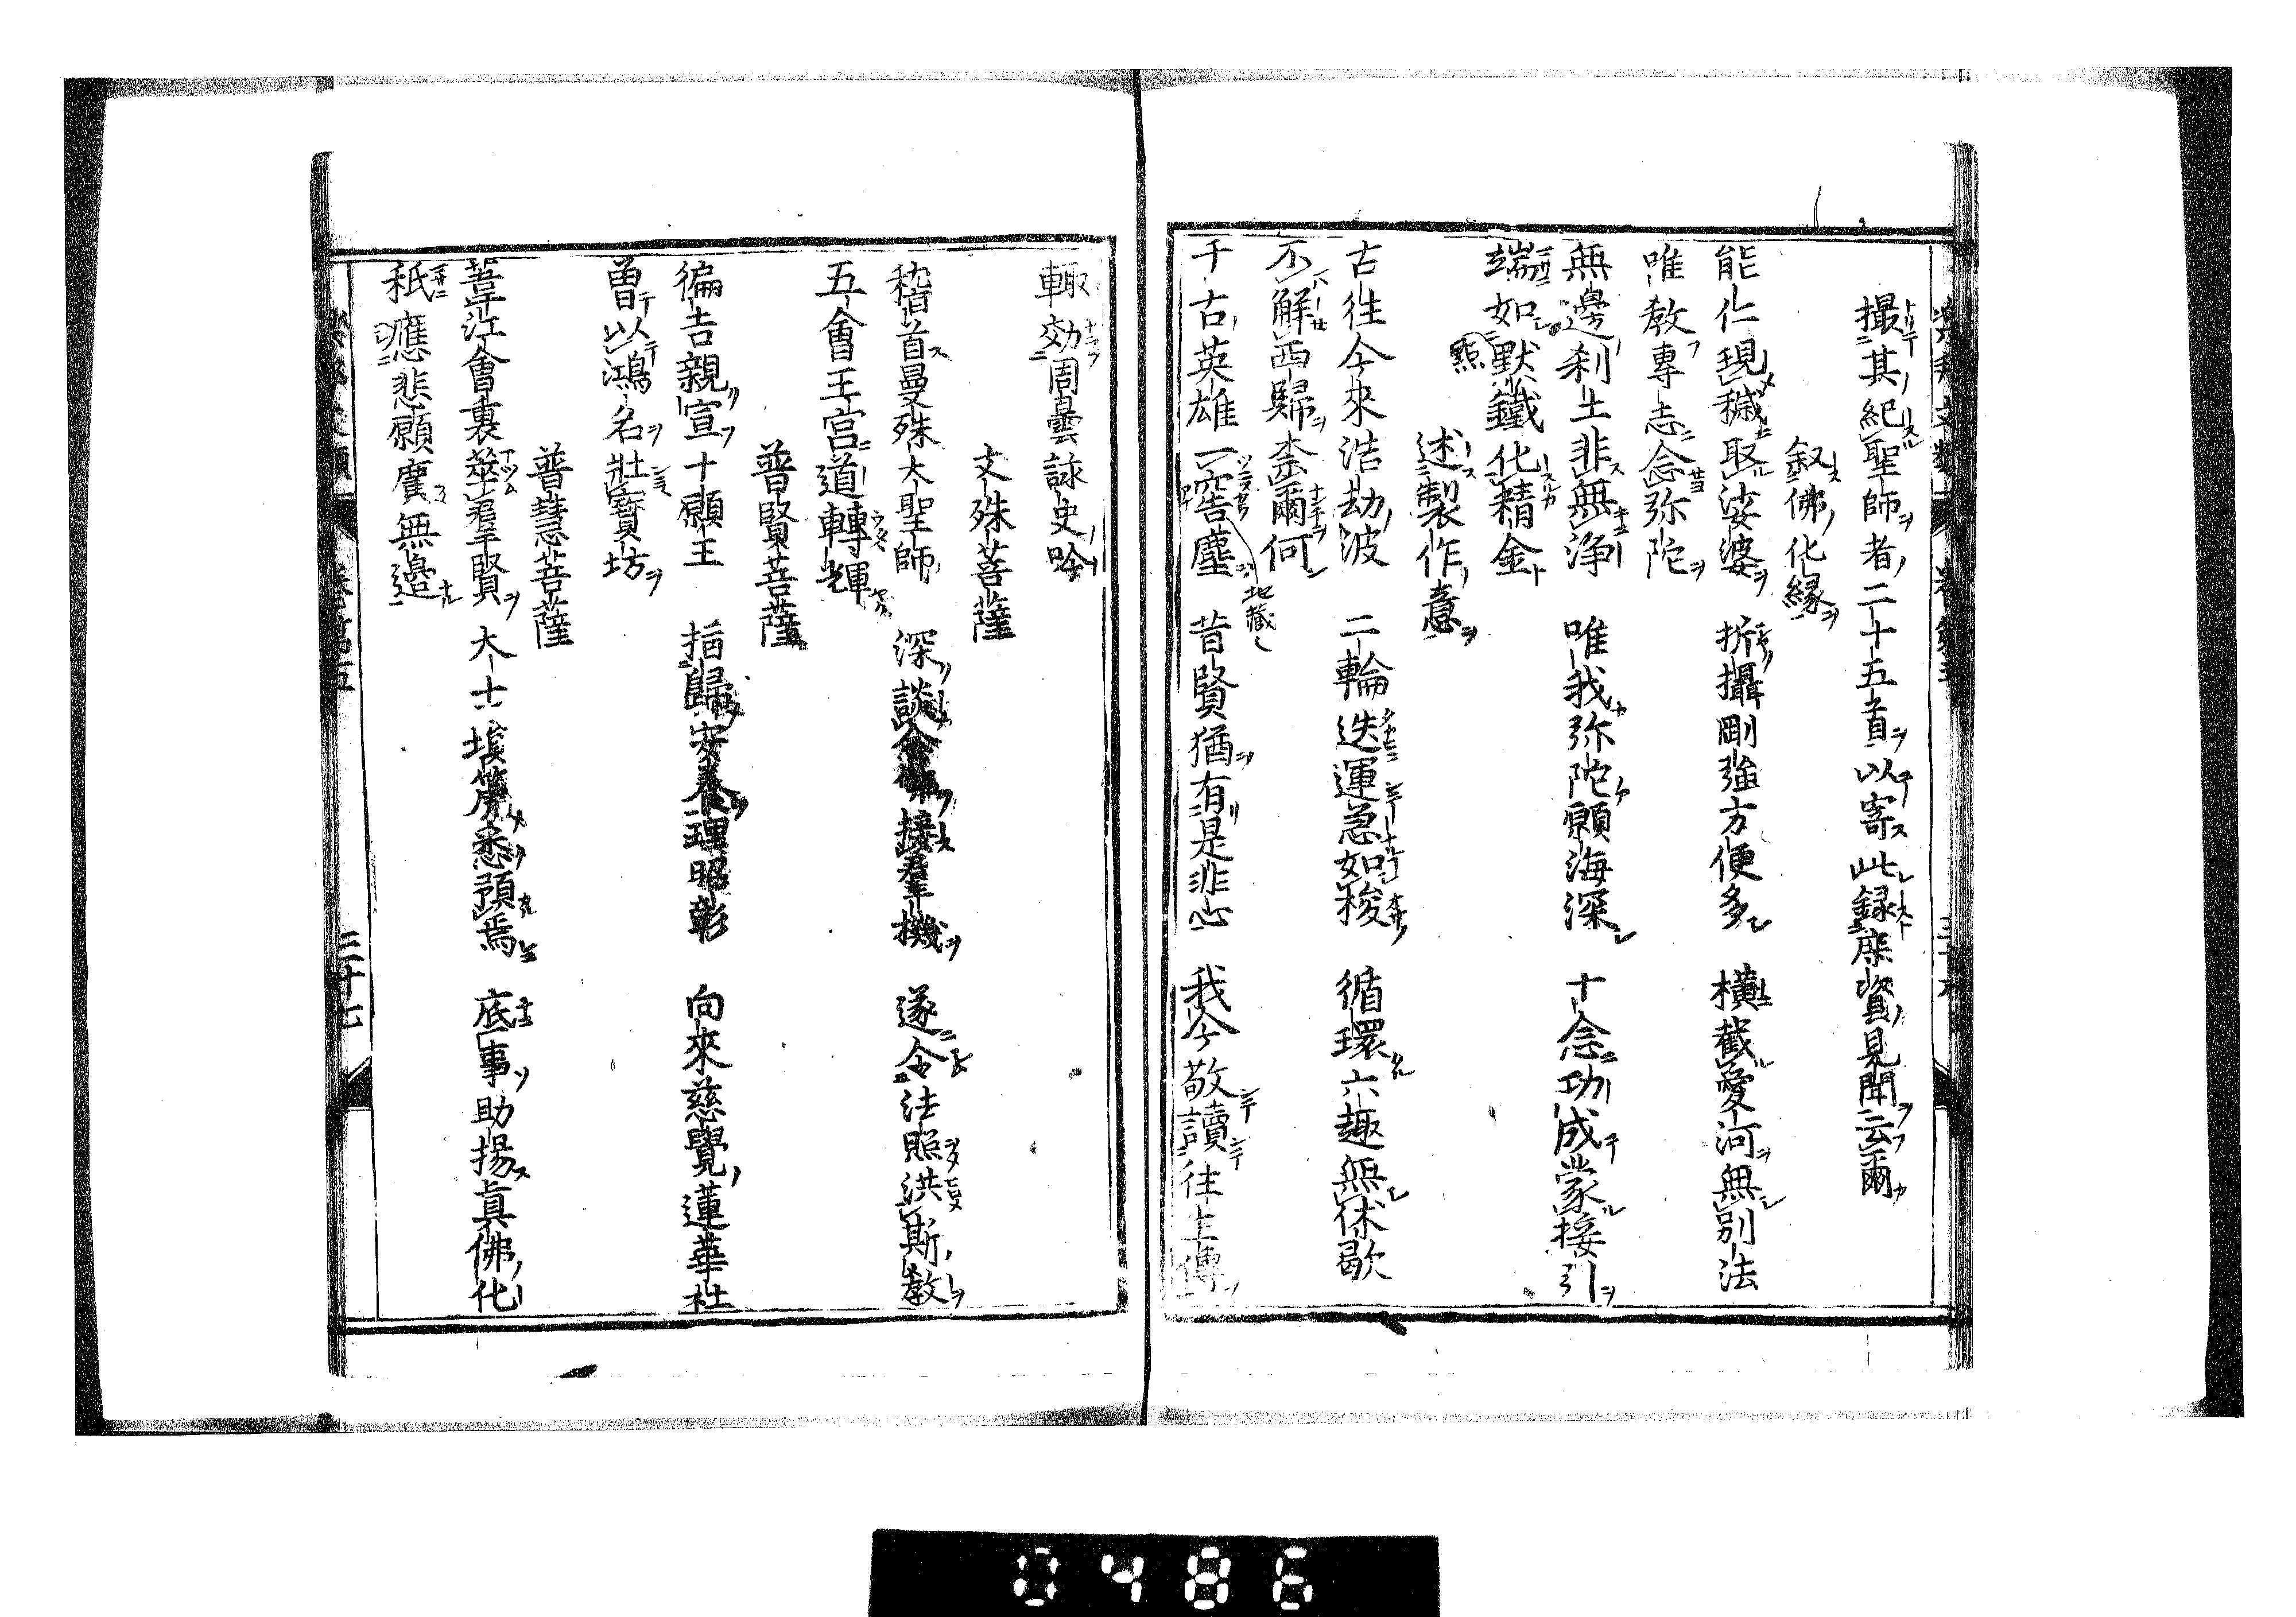 撮其紀聖師者二十五首以寄此録庶資見聞云爾
叙佛化縁
能仁現穢取娑婆 折攝剛強方便多 横截愛河無別法
唯教專志念弥陀
無邊刹土非無浄 唯我弥陀願海深 十念功成蒙接引
端如默鐵化精金
點
述製作意
古往今來浩劫波 二輪迭運急如梭 循環六趣無休歇
不解西歸柰爾何
千古英雄一窖塵 昔賢猶有是非心 我今敬讀往生傳
地藏
輙効周曇詠史吟
文殊菩薩
稽首曼殊大聖師 深談念佛接羣機 遂令法照洪斯教
五會王宮道轉輝
普賢菩薩
徧告親宣十願王 指歸安養理昭彰 向來慈覺蓮華社
曽以鴻名壯寳坊
普慧菩薩
菩江會裏萃羣賢 大士埃篪悉預焉 底事助揚真佛化
秖應悲願廣無邉
卷第五
二十七
0486